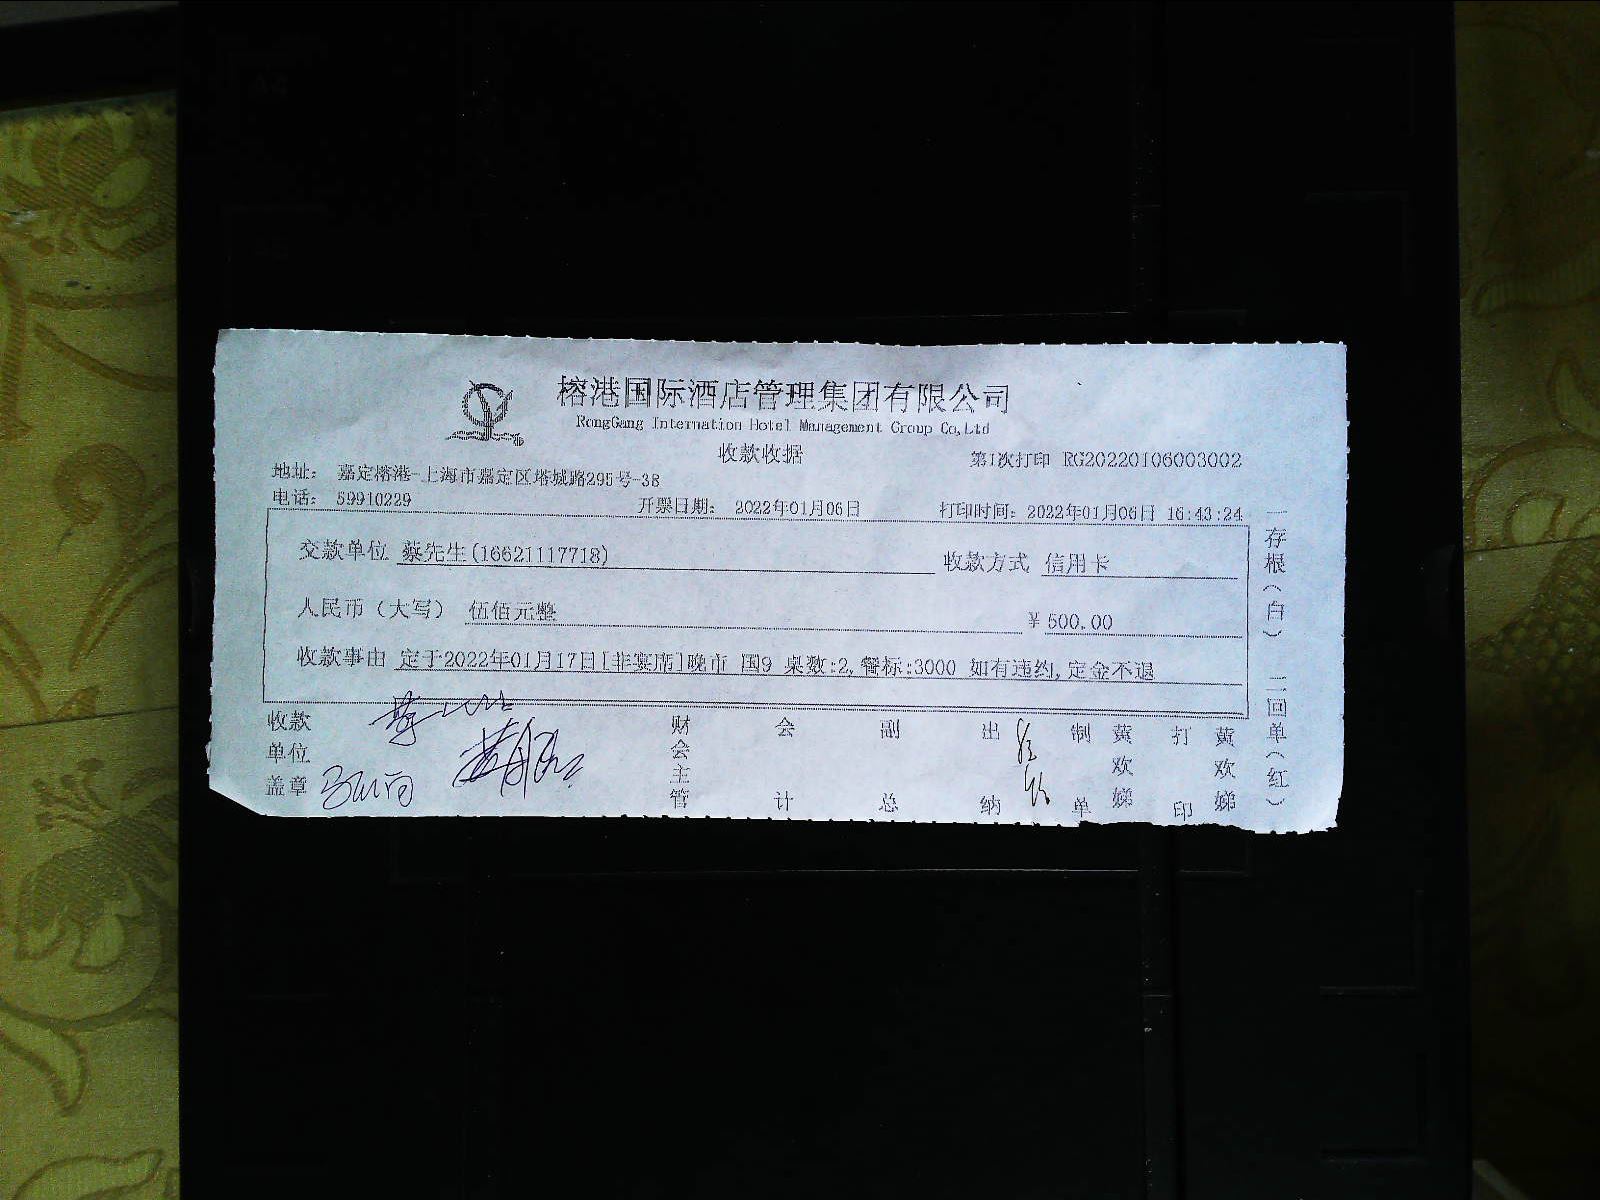 榕港国际酒店管理集团有限公司
RongGang Internation Hotel Management Group Co,Ltd
收款收据
第1次打印 RG20220106003002
地址： 嘉定榕港-上海市嘉定区塔城路295号-38
电话： 59910229
开票日期： 2022年01月06日
打印时间：2022年01月06日 16:43:24
交款单位 蔡先生(16621117718)
收款方式 信用卡
人民币（大写） 伍佰元整
￥500.00
收款事由 定于2022年01月17日[非宴席]晚市 国9 桌数:2,餐标:3000 如有违约,定金不退
收款单位盖章
财会主管
会计
副总
出纳
制单 黄欢娣
打印 黄欢娣
一存根（白） 二回单（红）